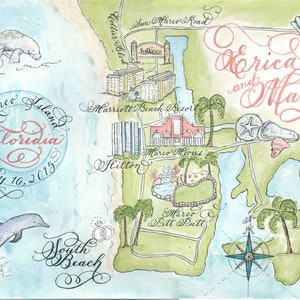 San Marco Road
Collier Blvd
Erica
and
Ma
Marriott Beach Resort
Marco Island
Floridia
16, 2015
Marco Movies
Hilton
Marco
Putt Putt
South
Beach